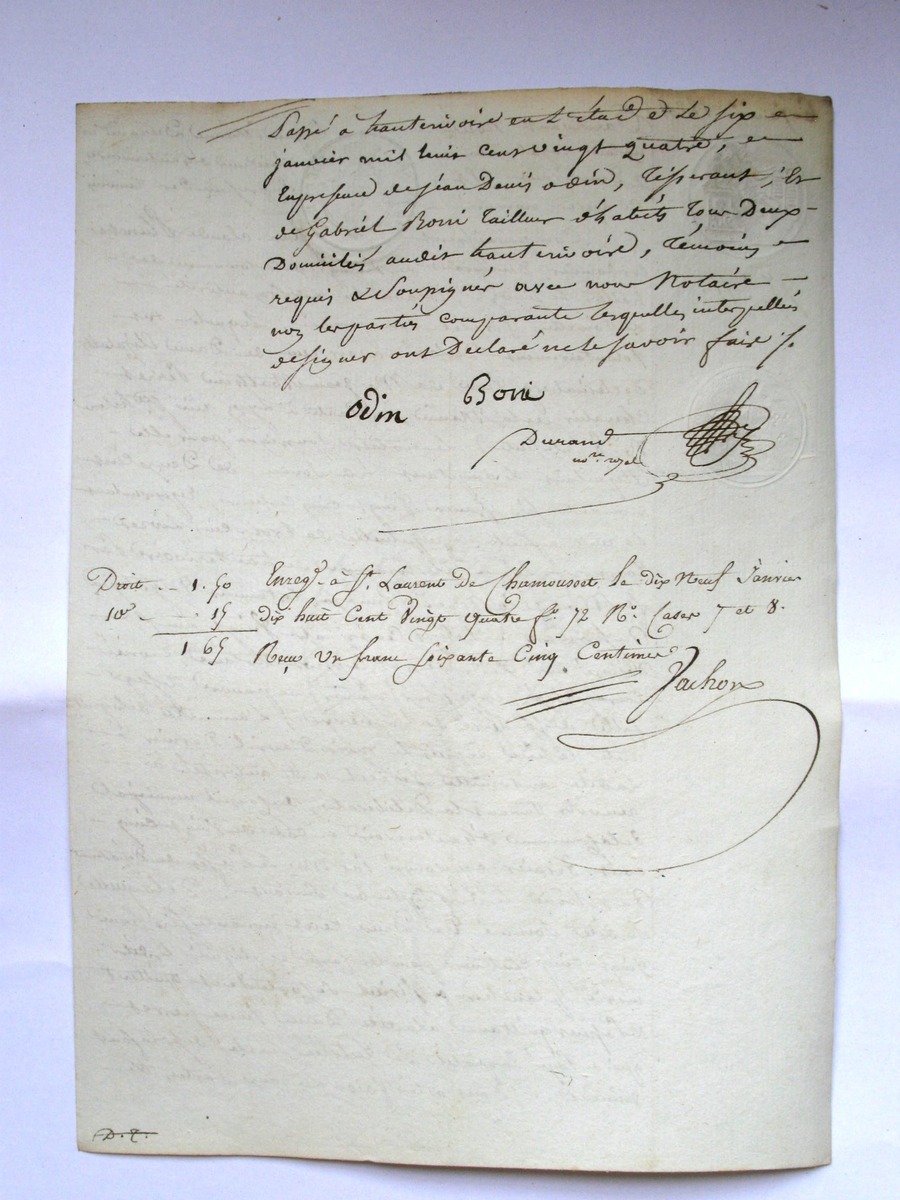 Passé à hauterivoire en l'étude le six
janvier mil huit cent vingt quatre, en
En presence de jéan Denis odin, Tisserant, Et
de Gabriél Boni Tailleur d'habits Tous Deux
Domiciliés audit hauterivoire, Témoins
requis & Soussignés avec nous Notaire
non les partiés comparante lesquelles interpellés
de signer ont Déclaré ne le savoir faire /.
odin Boni
Durand
nore. royal
Droit 1. 50 Enregé. à St. Laurent de Chamousset le dix Neuf Janvier
10e 15 dix huit Cent Vingt quatre fo. 72 Ro. Cases 7 et 8.
1 65 Reçu Un franc soixante Cinq Centimes
Jachon
D. T.